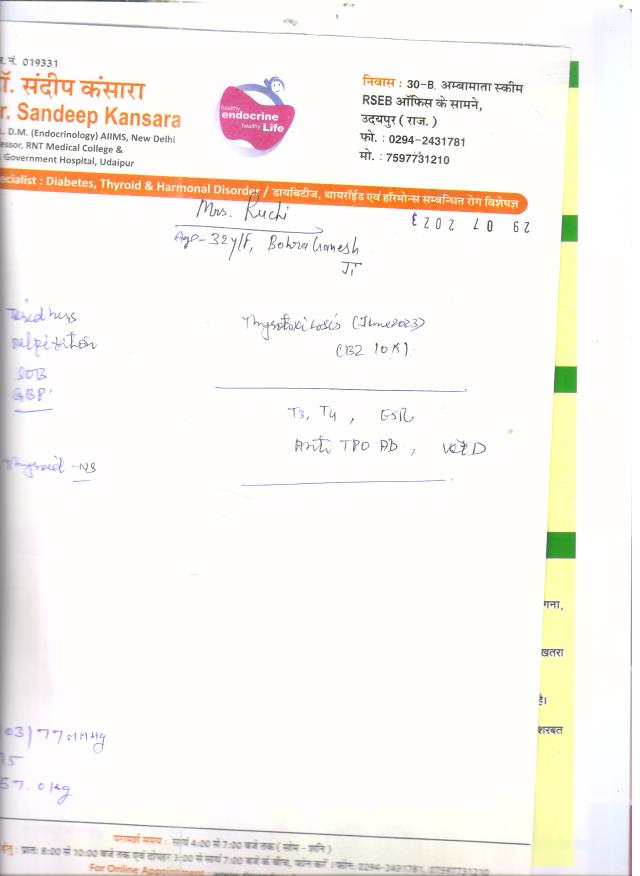 नं. 019331
डॉ. संदीप कंसारा
r. Sandeep Kansara
D.M. (Endocrinology) AIIMS, New Delhi
essor, RNT Medical College &
Government Hospital, Udaipur
healthy
endocrine
healthy Life
निवास : 30-B, अम्बामाता स्कीम
RSEB ऑफिस के सामने,
उदयपुर ( राज. )
फो. : 0294-2431781
मो. : 7597731210
ecialist : Diabetes, Thyroid & Harmonal Disorder / डायबिटीज, थायरॉईड एवं हॉरमोन्स सम्बन्धित रोग विशेषज्ञ
Mrs. Ruchi
29 07 2023
Age-32y/F, Bohra Ganesh
Ji
palpitation
Thyrotoxicosis (June2023)
(CBZ 10x)
SOB
T3, T4, ESR
Anti TPO AB, Vit D
Thyroid -NS
गना,
खतरा
है।
शरबत
03/77 mmHg
75
57.0 kg
परामर्श समय : सायं 4:00 से 7:00 बजे तक ( सोम - शनि )
हेतु : प्रातः 8:00 से 10:00 बजे तक एवं दोपहर 3:00 से सायं 7:00 बजे के बीच, फोन करें । फोन: 0294-2431781, 07597731210
For Online Appointment